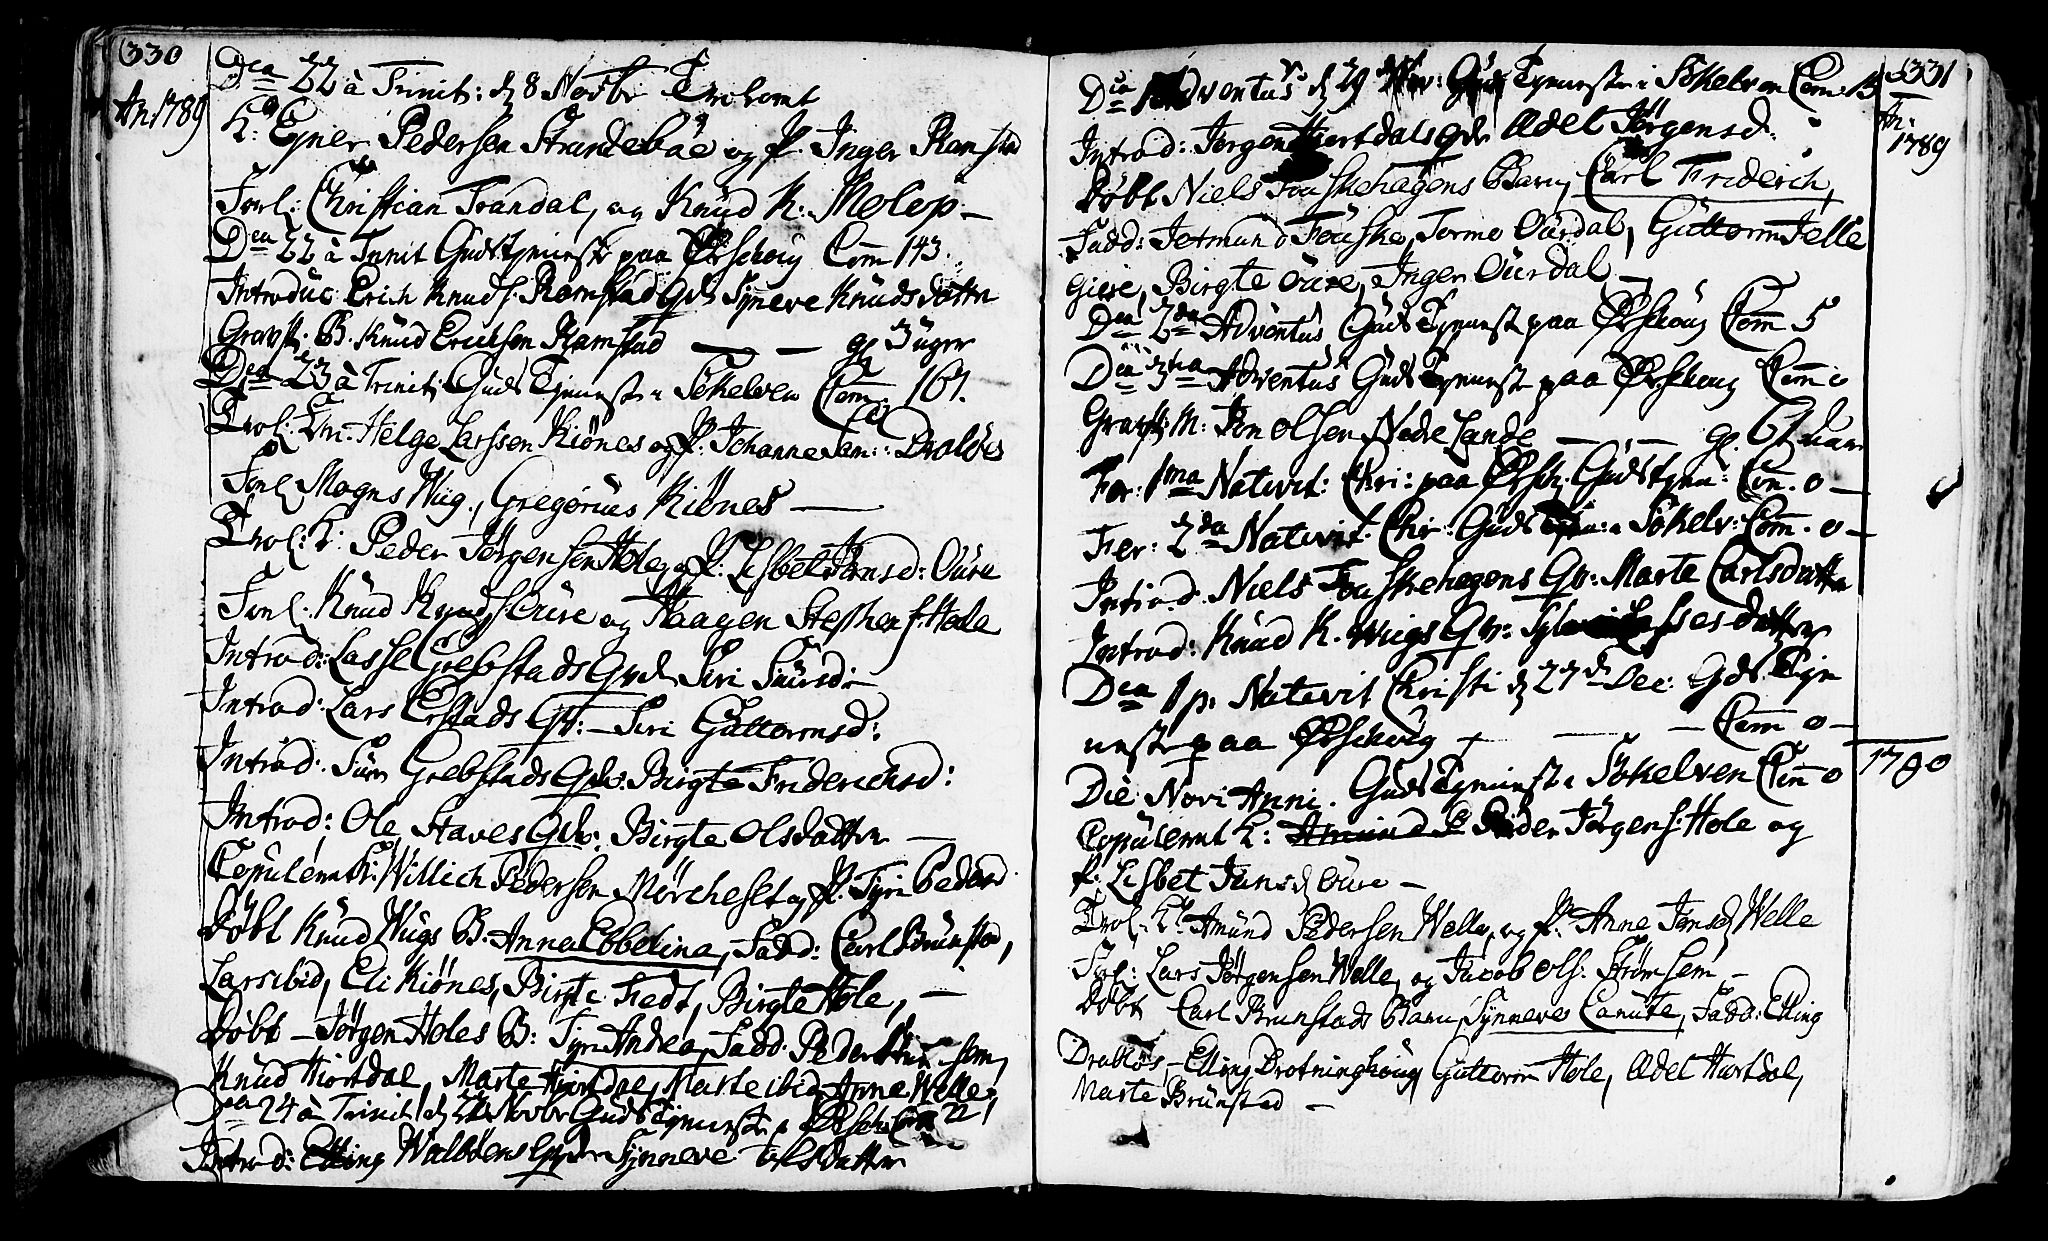 330
An 1789
Dca 22 à Trinit: d 8 Novbr Trolovet
K: Ejner Pedersen Strandebøe og P. Inger Ramstad
Forl: Christian Trandal, og Knud K: Molep –
Dca 22 à Trinit Gudstjenest paa Ørschoug Com 143.
Introduc: Erich Knuds: Ramstad Qvde Synneve Knudsdatter
Gravf: B. Knud Erichsen Ramstad — — gl 3 uger
Dca 23 à Trinit: Guds Tjenest i Søkelven Com. 161.
Trol: Em: Helge Larssen Kiønes og P. Johanne Drabløs
Forl Mogns Wiig, Gregorius Kiønes —
Trol: K: Peder Jørgensen Hole og P: Lisbet Jansd: Oure
Forl: Knud Knuds Oure og Haagen Stephens: Hole
Introd: Lasse Grebstads Qvde Siri Siursd:
Introd: Lars Erstads Qv: – Siri Guttormsd:
Introd: Siur Grebstads Qv: Birgte Friderichsd:
Introd: Ole Staves Qv: Birgte Olsdatter —
Copulerit K: Willich Pedersen Mørcheset og P. Syri Pedersd
Døbt Knud Wiigs B: Anna Ebbelina, Fadd: Carl Brunstad,
Lars ibid, Eli Kiønes, Birgte Tredt, Birgte Hole, —
Døbt – Jørgen Holes B: Syri Andrea, Fadd: Peder
Knud Hiortdal, Marte Hiortdal, Marte ibid Anne Welle
Dca 24 à Trinit: d 22 Novbr Guds Tjenest i Ørsch: Com 22
Introd: Elling Walbøens Qvde Synneve Olsdatter
331
An:
1789
Dca 1 Adventus d 29 Guds Tjenest i Søkelven Com: 13
Introd: Jørgen Hiortdals Qv Adel Jørgensd:
Døbt Niels Fouskehagens Barn, Carl Friderich,
Fadd: Jetmund Fouske, Tormo Ourdal, Guttorm Jelle
Giere, Birgte Oure, Inger Ourdal —
Dca 2da Adventus Guds Tjenest paa Ørschoug Com 5
Dca 3tia Adventus Guds Tjenest paa Ørschoug Com 0
Gravf: M: Jon Olsen Nedre Lande — — gl. 61 Aar
Fer: 1ma Nativit: Chri: paa Ørsch. Gudstjen: Com. 0 –
Fer: 2da Nativit. Chr: Guds Tjen: i Søkelv: Com. 0 –
Introd. Niels Fouskehagens Qv: Marte Carlsdatter
Introd: Knud K. Wiigs Qv: Lassesdatter
Dca 1 p. Nativit Christi d 27d Dec: Gds Tjen
nest paa Ørschoug — — Com 0 –
1790
Die Novi Anni. Guds Tjenest i Søkelven Com 0
Copulerit K: Peder Jørgens: Hole og
P: Lisbet Jansd Oure –
Trol: K: Amund Pedersen Welle, og P. Anne Jansd Welle
Forl: Lars Jørgensen Welle, og Jacob Ols: Strømsem –
Døbt Carl Brunstads Barn, Synneves Canute, Fadd: Elling
Drabløs – Elling Drotninghoug, Guttorm Hole, Adel Hiortdal,
Marte Brunstad –